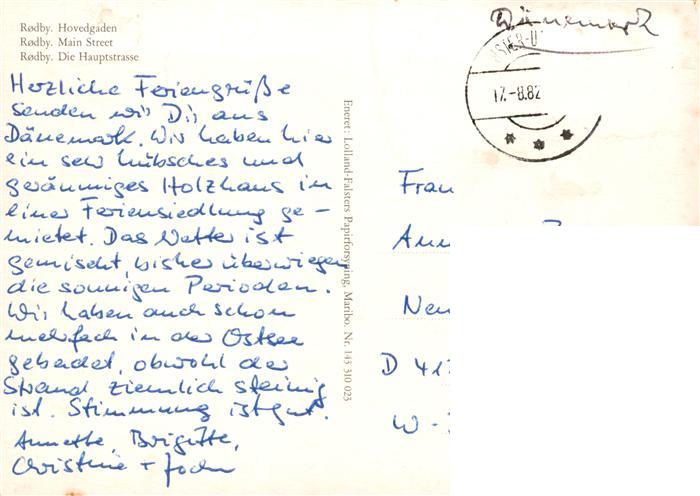 Rødby. Hovedgaden
Rødby. Main Street
Rødby. Die Hauptstrasse
Herzliche Feriengrüße
senden wir Dir aus
Dänemark. Wir haben hier
ein sehr hübsches und
geräumiges Holzhaus in
einer Feriensiedlung ge-
mietet. Das Wetter ist
gemischt, bisher überwiegen
die sonnigen Perioden.
Wir haben auch schon
mehrfach in der Ostsee
gebadet, obwohl der
Strand ziemlich steinig
ist. Stimmung ist gut.
Annette, Brigitte,
Christine + Jochen
Eneret: Lolland-Falsters Papirforsyning, Maribo. Nr. 143 310 023
Dänemark
17.-8.82
Frau
Ann
Neu
D 41
W-